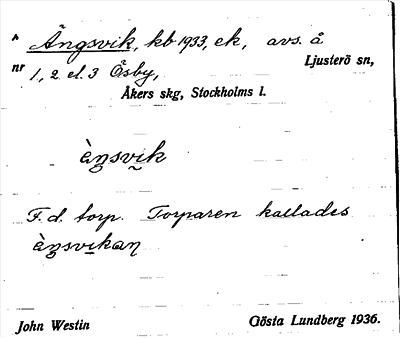 Ängsvik, kb 1933, ek, avs. å
nr 1, 2 el. 3 Åsby, Ljusterö sn,
Åkers skg, Stockholms l.
èŋsvik
F. d. torp. Torparen kallades
èŋsvikaɳ
John Westin Gösta Lundberg 1936.